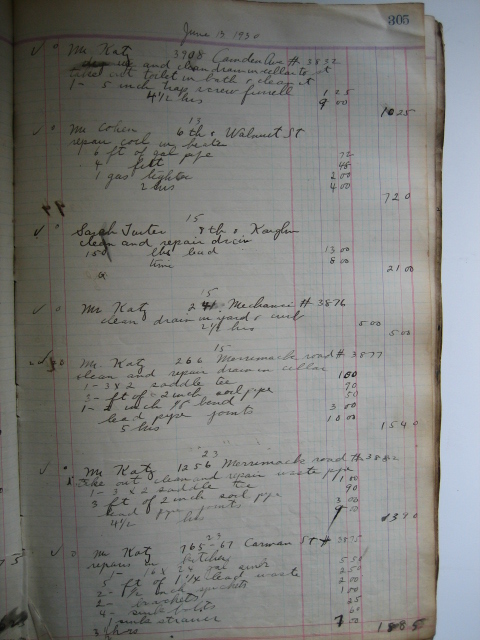 305
June 13, 1930
Mr Katz 3908 Camden Ave # 3832
and clean drain in cellar
take out toilet in bath & clean it
1 - 5 inch trap screw ferrell 1 25
4 1/2 hrs 9 00
10 25
13
Mr Cohen 6th & Walnut St
repair coil in heater
6 ft of gal pipe 72
4 fitt 48
1 gas lighter 2 00
2 hrs 4 00
7 20
15
Sarah Tuster 8th & Kaighn
clean and repair drain
150 lbs lead 13 00
time 8 00
21 00
15
Mr Katz 241 Mechanic # 3876
clean drain in yard & curb
2 1/2 hrs 5 00
5 00
15
Mr Katz 266 Merrimack road # 3877
clean and repair drain in cellar
1 - 3 x 2 saddle tee 1 00
3 - ft of 2 inch soil pipe 90
1 - 2 inch bend 50
lead pipe joints 3 00
5 hrs 10 00
15 40
23
Mr Katz 1256 Merrimack road
take out clean and repair waste pipe
1 - 3 x 2 saddle tee 1 00
3 ft of 2 inch soil pipe 90
lead pipe joints 3 00
4 1/2 hrs 9 00
13 90
24
Mr Katz 765-67 Carman St # 3875
repairs in kitchen
5 50
5 ft of 1 1/2 lead waste 2 50
2 - inch 2 00
2 - brackets 1 00
4 - sink bolts 25
1 sink strainer 60
3 hrs 7 00
18 85